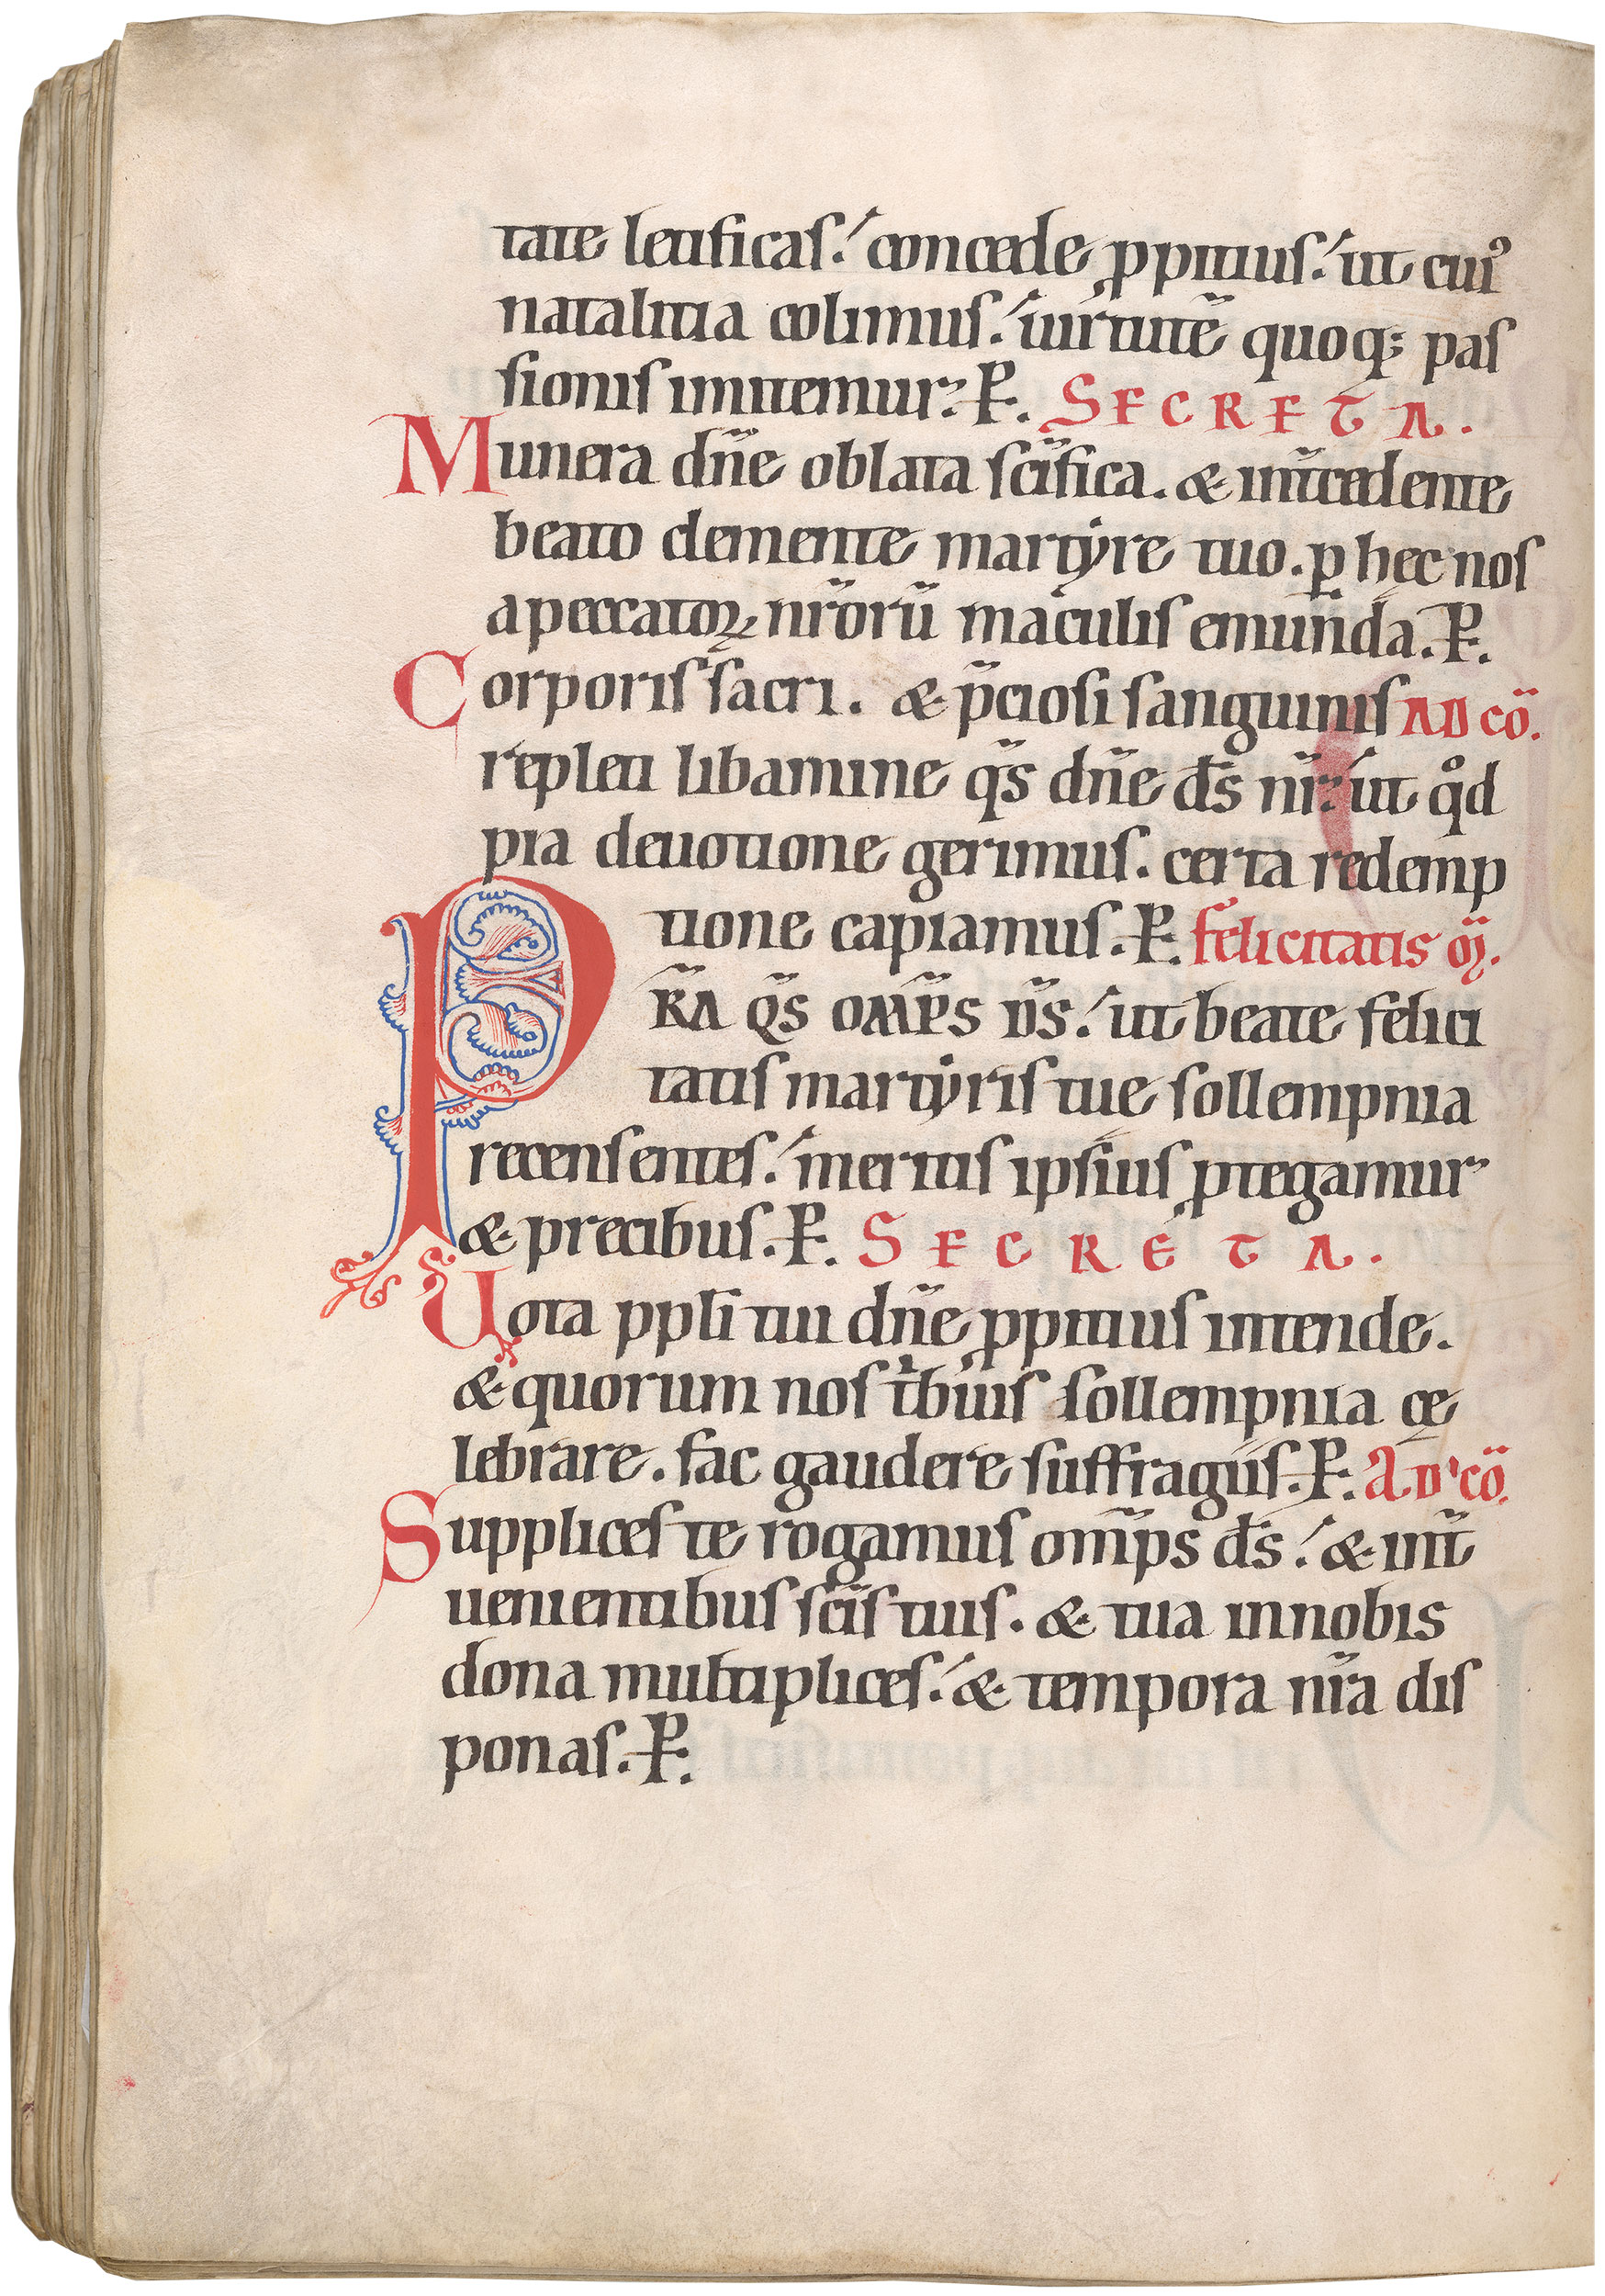 tate letificas. concede ꝓpitius. ut cuiꝰ
natalitia colimus. uirtutē quoq; pas
sionis imitemur. P. SECRETA.
Munera dn̄e oblata sc̄ifica. & int̄cedente
beato clemente martyre tuo. ꝑ hęc nos
a peccatoꝝ nr̄orū maculis emunda. P.
Corporis sacri. & p̄ciosi sanguinis AD cō.
repleti libamine qs̄ dn̄e ds̄ nr̄. ut qͦd
pia deuotione gerimus. certa redemp
tione capiamus. P. felicitatis ꝳ.
PR̄A QS̄ OMP̄S DS̄. ut beate felici
tatis martyris tue sollempnia
recensentes. meritis ipsius ꝓtegamur
& precibus. P. SECRETA.
Uota ppl̄i tui dn̄e ꝓpitius intende.
& quorum nos tͥbuis sollempnia cę
lebrare. fac gaudere suffragiis. P. AD cō.
Supplices te rogamus omp̄s ds̄. & int̄
uenientibus sc̄is tuis. & tua in nobis
dona multiplices. & tempora nr̄a dis
ponas. P.